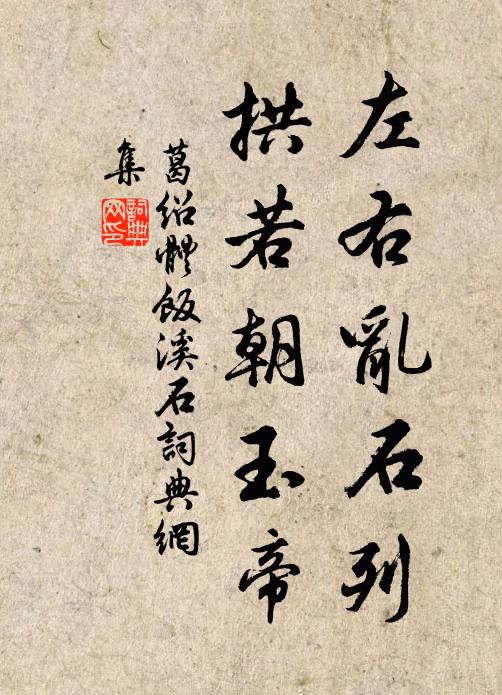 左右亂石列
拱若朝玉帝
葛绍體飯溪石詞典網
集
詞典
网印